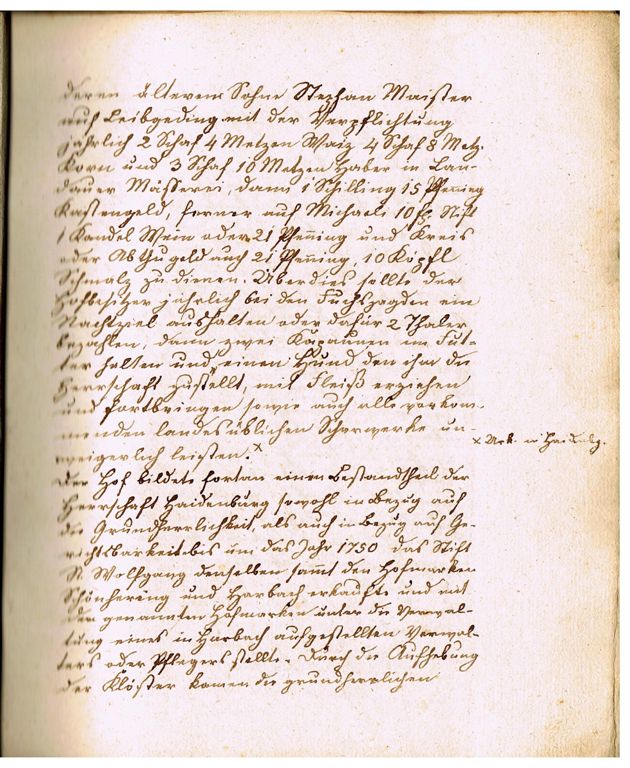 deren älteren Sohne Stephan Maister
auf Leibgeding mit der Verpflichtung
jährlich 2 Schaf 4 Metzen Waiz 4 Schaf 8 Metz.
Korn und 3 Schaf 10 Metzen Haber in Lan-
dauer Mässerei, dann 1 Schilling 15 Pfenning
Kastengeld, ferner auf Michaeli 10 ß Stift
1 Kandel Wein oder 21 Pfenning und Kreis
oder Abthu geld auch 21 Pfenning, 10 Köpfl
Schmalz zu dienen. Überdies sollte der
Hofbesitzer jährlich bei den Fuchsjagden ein
Nachtziel aushalten oder dafür 2 Thaler
bezahlen, dann zwei Kapaunen im Fut-
ter halten und einen Hund den ihm die
Herrschaft zustellt, mit Fleiß erziehen
und fortbringen sowie auch alle vorkom-
menden landesüblichen Scharwerke un-
weigerlich leisten. x
x Urk. in Haidenbg.
Der Hof bildete fortan einen Bestandtheil der
Herrschaft Haidenburg sowohl in Bezug auf
die Grundherrlichkeit, als auch in Bezug auf Ge-
richtsbarkeit bis um das Jahr 1750 das Stift
St. Wolfgang denselben sammt den Hofmarken
Schönhering und Harbach erkaufte und mit
den genannten Hofmarken unter die Verwal-
tung eines in Harbach aufgestellten Verwal-
ters oder Pflegers stellte. Durch die Aufhebung
der Klöster kamen die grundherrlichen